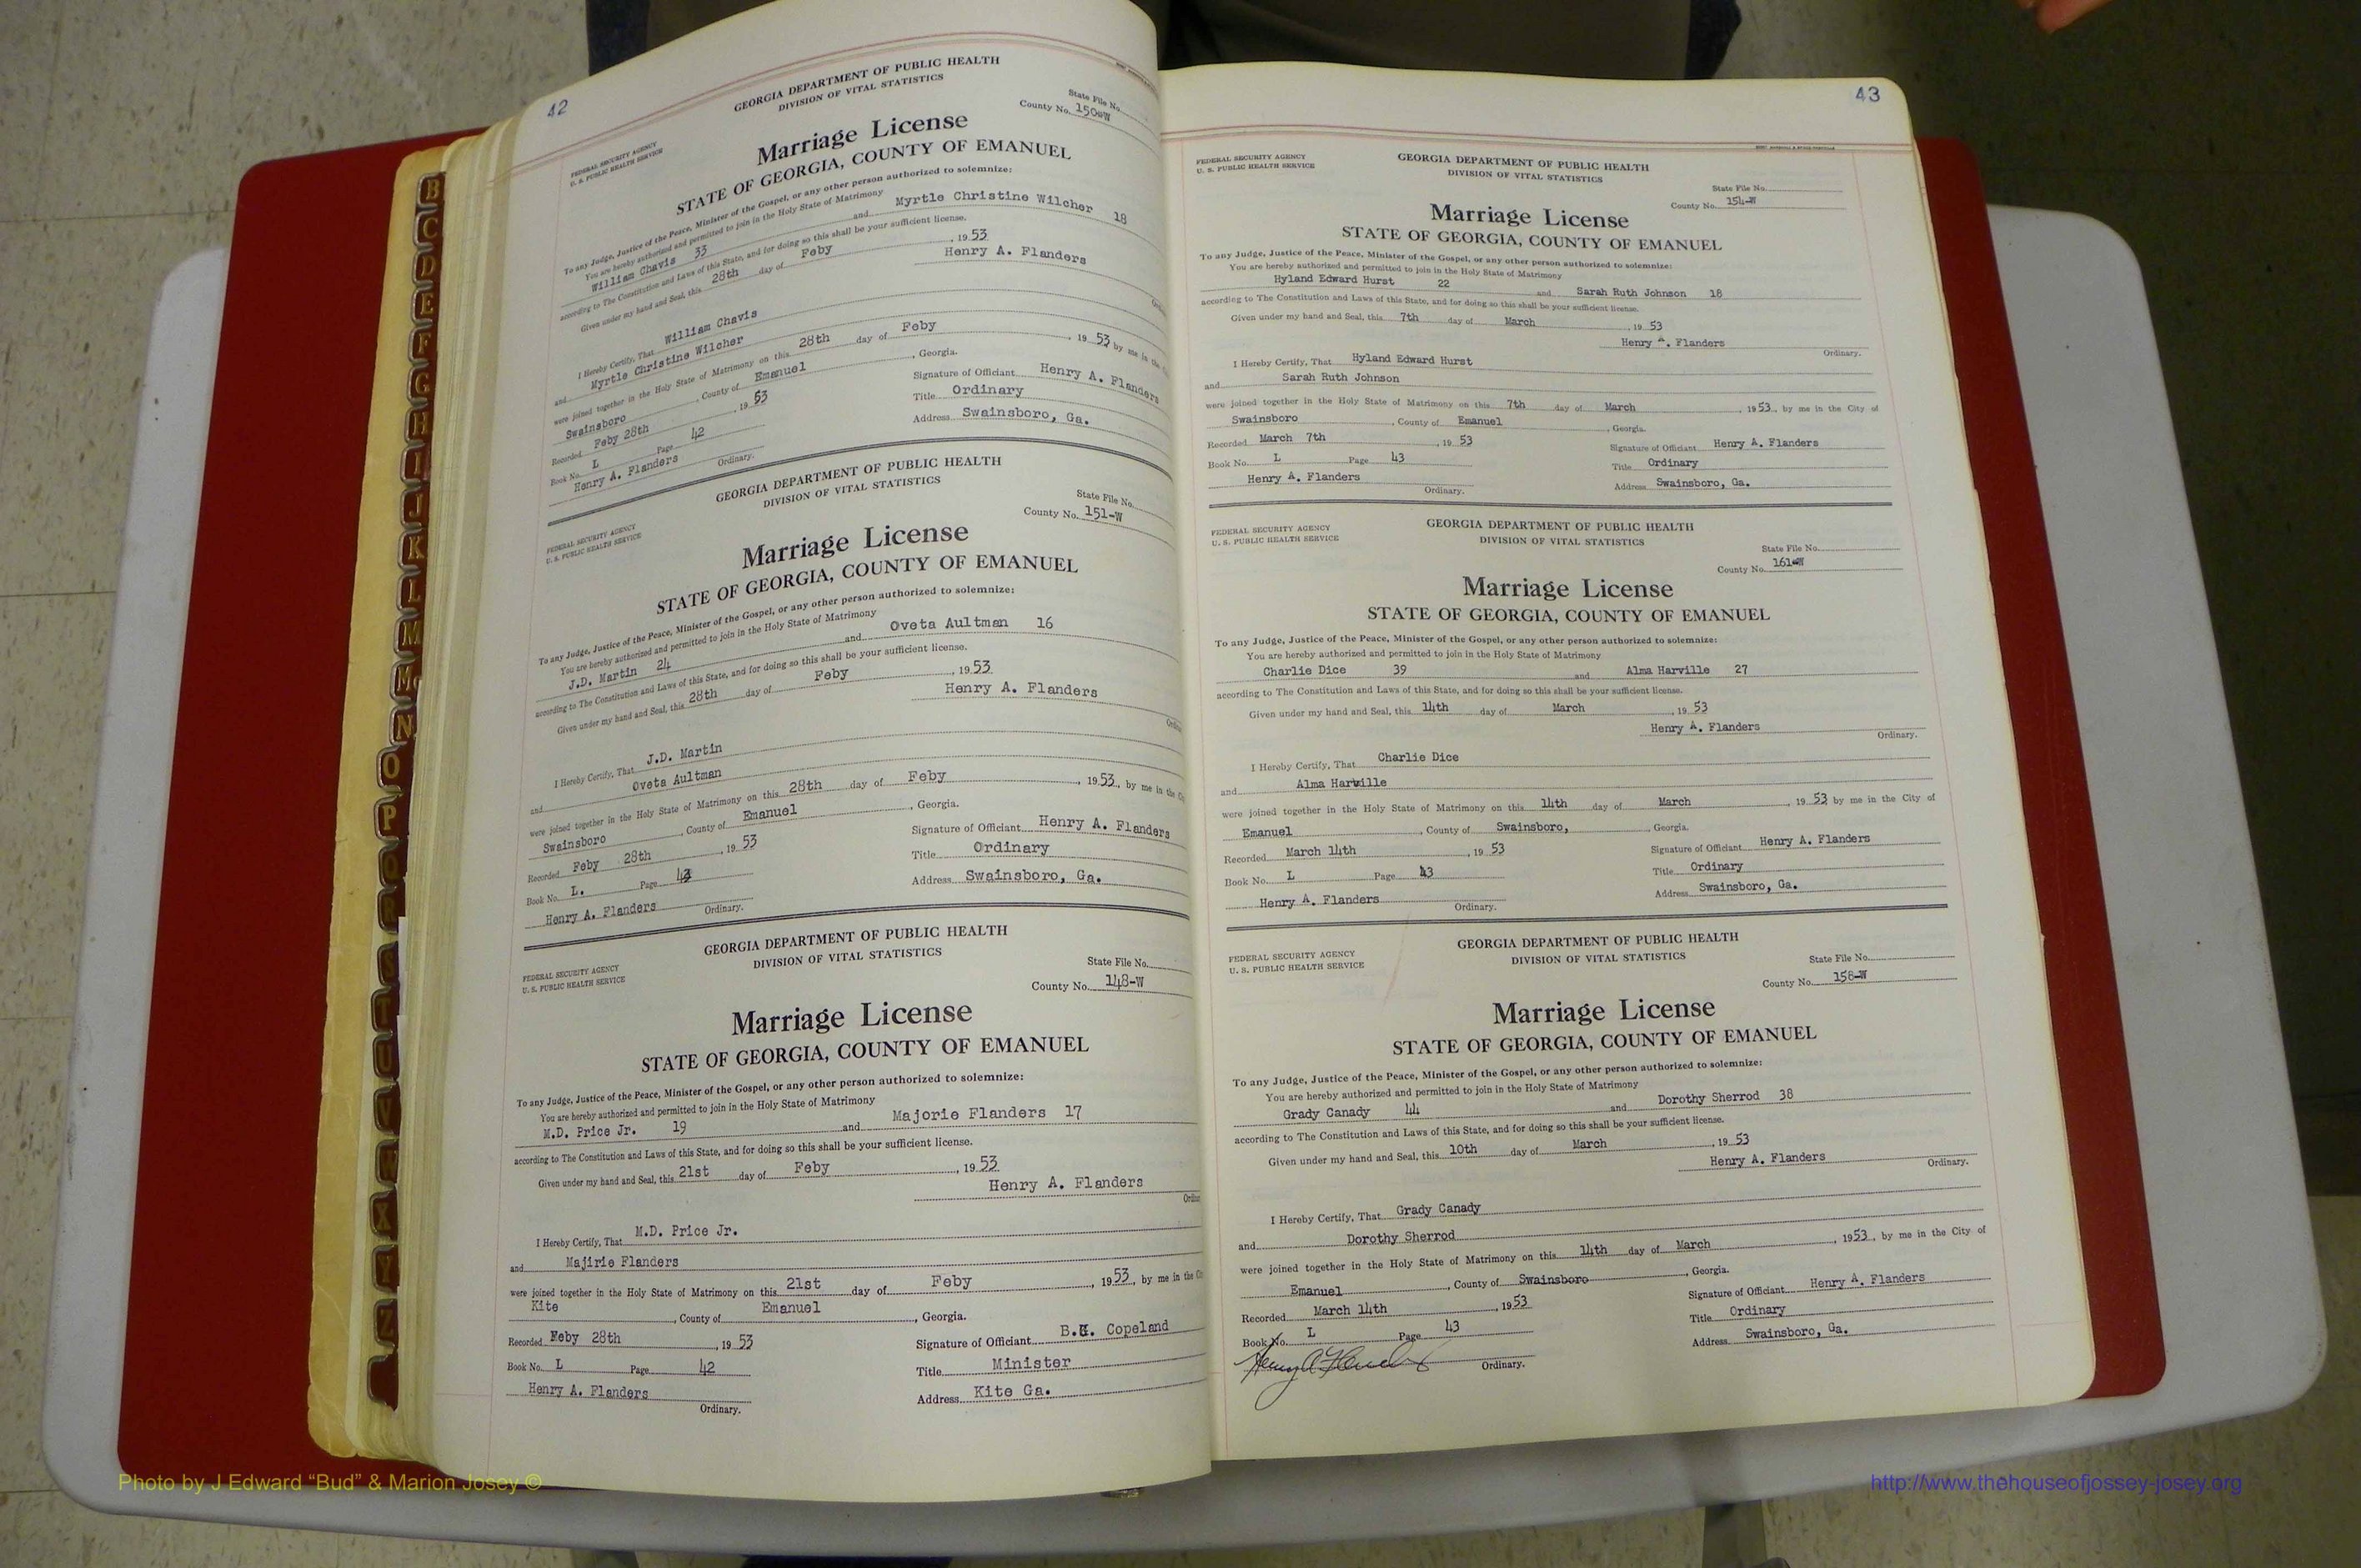 42
GEORGIA DEPARTMENT OF PUBLIC HEALTH
DIVISION OF VITAL STATISTICS
FEDERAL SECURITY AGENCY
U. S. PUBLIC HEALTH SERVICE
State File No.
County No. 150-W
Marriage License
STATE OF GEORGIA, COUNTY OF EMANUEL
To any Judge, Justice of the Peace, Minister of the Gospel, or any other person authorized to solemnize:
You are hereby authorized and permitted to join in the Holy State of Matrimony
William Chavis 33 and Myrtle Christine Wilcher 18
according to The Constitution and Laws of this State, and for doing so this shall be your sufficient license.
Given under my hand and Seal, this 28th day of Feby, 1953
Henry A. Flanders
I Hereby Certify, That William Chavis
and Myrtle Christine Wilcher
were joined together in the Holy State of Matrimony on this 28th day of Feby, 1953, by me in the
Swainsboro, County of Emanuel, Georgia.
Recorded Feby 28th, 1953
Signature of Officiant Henry A. Flanders
Book No. L Page 42
Title Ordinary
Henry A. Flanders
Address Swainsboro, Ga.
Ordinary.
GEORGIA DEPARTMENT OF PUBLIC HEALTH
DIVISION OF VITAL STATISTICS
FEDERAL SECURITY AGENCY
U. S. PUBLIC HEALTH SERVICE
State File No.
County No. 151-W
Marriage License
STATE OF GEORGIA, COUNTY OF EMANUEL
To any Judge, Justice of the Peace, Minister of the Gospel, or any other person authorized to solemnize:
You are hereby authorized and permitted to join in the Holy State of Matrimony
J.D. Martin 24 and Oveta Aultman 16
according to The Constitution and Laws of this State, and for doing so this shall be your sufficient license.
Given under my hand and Seal, this 28th day of Feby, 1953
Henry A. Flanders
I Hereby Certify, That J.D. Martin
and Oveta Aultman
were joined together in the Holy State of Matrimony on this 28th day of Feby, 1953, by me in the
Swainsboro, County of Emanuel, Georgia.
Recorded Feby 28th, 1953
Signature of Officiant Henry A. Flanders
Book No. L. Page
Title Ordinary
Henry A. Flanders
Address Swainsboro, Ga.
Ordinary.
GEORGIA DEPARTMENT OF PUBLIC HEALTH
DIVISION OF VITAL STATISTICS
FEDERAL SECURITY AGENCY
U. S. PUBLIC HEALTH SERVICE
State File No.
County No. 148-W
Marriage License
STATE OF GEORGIA, COUNTY OF EMANUEL
To any Judge, Justice of the Peace, Minister of the Gospel, or any other person authorized to solemnize:
You are hereby authorized and permitted to join in the Holy State of Matrimony
M.D. Price Jr. 19 and Majorie Flanders 17
according to The Constitution and Laws of this State, and for doing so this shall be your sufficient license.
Given under my hand and Seal, this 21st day of Feby, 1953
Henry A. Flanders
I Hereby Certify, That M.D. Price Jr.
and Majirie Flanders
were joined together in the Holy State of Matrimony on this 21st day of Feby, 1953, by me in the
Kite, County of Emanuel, Georgia.
Recorded Feby 28th, 1953
Signature of Officiant Copeland
Book No. L Page 42
Title Minister
Henry A. Flanders
Address Kite Ga.
Ordinary.
43
FEDERAL SECURITY AGENCY
U. S. PUBLIC HEALTH SERVICE
GEORGIA DEPARTMENT OF PUBLIC HEALTH
DIVISION OF VITAL STATISTICS
State File No.
County No. 154-W
Marriage License
STATE OF GEORGIA, COUNTY OF EMANUEL
To any Judge, Justice of the Peace, Minister of the Gospel, or any other person authorized to solemnize:
You are hereby authorized and permitted to join in the Holy State of Matrimony
Hyland Edward Hurst 22 and Sarah Ruth Johnson 18
according to The Constitution and Laws of this State, and for doing so this shall be your sufficient license.
Given under my hand and Seal, this 7th day of March, 1953
Henry A. Flanders
Ordinary.
I Hereby Certify, That Hyland Edward Hurst
and Sarah Ruth Johnson
were joined together in the Holy State of Matrimony on this 7th day of March, 1953, by me in the City of
Swainsboro, County of Emanuel, Georgia.
Recorded March 7th, 1953
Signature of Officiant Henry A. Flanders
Book No. L Page 43
Title Ordinary
Henry A. Flanders
Address Swainsboro, Ga.
Ordinary.
FEDERAL SECURITY AGENCY
U. S. PUBLIC HEALTH SERVICE
GEORGIA DEPARTMENT OF PUBLIC HEALTH
DIVISION OF VITAL STATISTICS
State File No.
County No. 161-W
Marriage License
STATE OF GEORGIA, COUNTY OF EMANUEL
To any Judge, Justice of the Peace, Minister of the Gospel, or any other person authorized to solemnize:
You are hereby authorized and permitted to join in the Holy State of Matrimony
Charlie Dice 39 and Alma Harville 27
according to The Constitution and Laws of this State, and for doing so this shall be your sufficient license.
Given under my hand and Seal, this 14th day of March, 1953
Henry A. Flanders
Ordinary.
I Hereby Certify, That Charlie Dice
and Alma Harville
were joined together in the Holy State of Matrimony on this 14th day of March, 1953 by me in the City of
Emanuel, County of Swainsboro, Georgia.
Recorded March 14th, 1953
Signature of Officiant Henry A. Flanders
Book No. L Page 43
Title Ordinary
Henry A. Flanders
Address Swainsboro, Ga.
Ordinary.
FEDERAL SECURITY AGENCY
U. S. PUBLIC HEALTH SERVICE
GEORGIA DEPARTMENT OF PUBLIC HEALTH
DIVISION OF VITAL STATISTICS
State File No.
County No. 158-W
Marriage License
STATE OF GEORGIA, COUNTY OF EMANUEL
To any Judge, Justice of the Peace, Minister of the Gospel, or any other person authorized to solemnize:
You are hereby authorized and permitted to join in the Holy State of Matrimony
Grady Canady 44 and Dorothy Sherrod 38
according to The Constitution and Laws of this State, and for doing so this shall be your sufficient license.
Given under my hand and Seal, this 10th day of March, 1953
Henry A. Flanders
Ordinary.
I Hereby Certify, That Grady Canady
and Dorothy Sherrod
were joined together in the Holy State of Matrimony on this 14th day of March, 1953, by me in the City of
Emanuel, County of Swainsboro, Georgia.
Recorded March 14th, 1953
Signature of Officiant Henry A. Flanders
Book No. L Page 43
Title Ordinary
Henry A Flanders
Address Swainsboro, Ga.
Ordinary.
B
C
D
E
F
G
H
I
J
K
L
M
M
N
O
P
Photo by J Edward “Bud” & Marion Josey ©
http://www.thehouseofjossey-josey.org